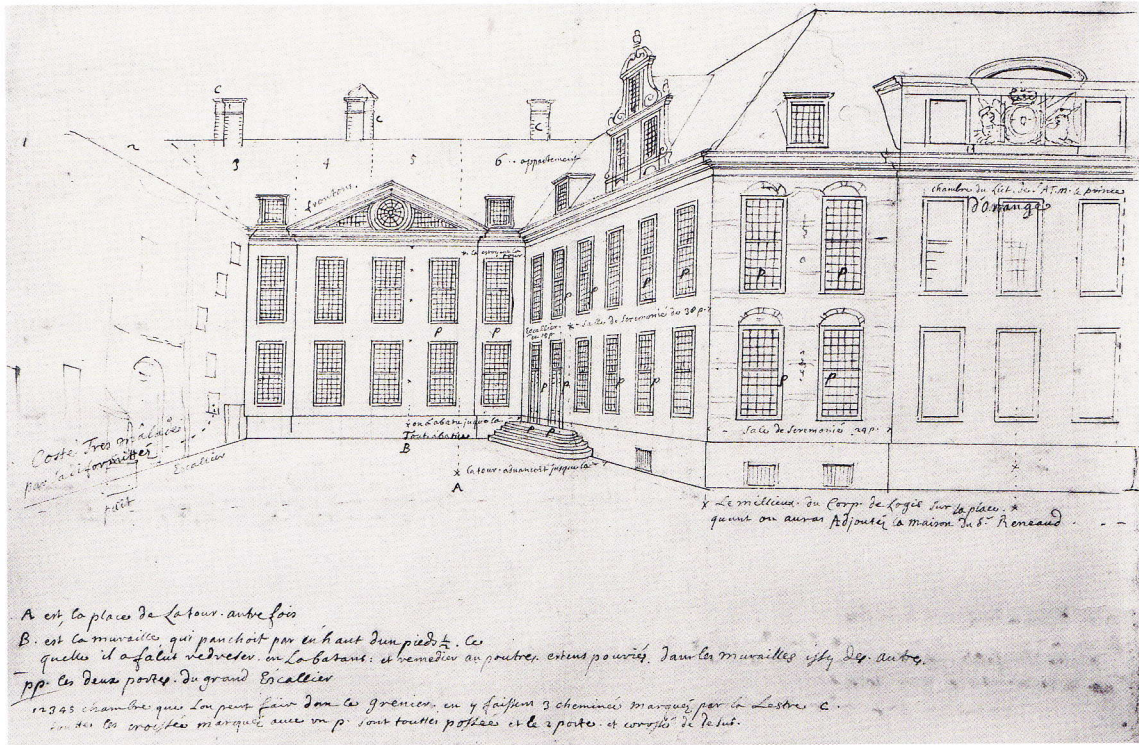 C
C
C
1
2
3
4
5
6 .. appartement
frontons
chambre du Lict. de. S A.M. le prince
d'Orrange
P
P
P
P
P
P
P
P
Escallier
Salles de Seremonies de 38 p.
P
P
P
P
P
P
P
P
P
Sale de Seremonies 24 p.
on labatu jusque la
Tout abatu
B
x la tour advancoit jusque la
A
Costé Tres malaisé
par a
Escallier
petit
x Le millieux du Corp de Logis sur la place. x
quant on auras Adjoutéz la maison du Sr. Reneaud
A est, la place de La tour autre fois
B. est la muraille qui panchoit par en haut dun pieds ½. Ce
quelle il a falut redreser en La batant: et remedier au poutres pouriés, dans les murailles des autres
pp. les deux portes du grand Escallier
12345 chambre que Lon peut fair dans le grenier, en y faissent 3 cheminée marquez par la Lestre C.
toutes les croissée marquéz avec un p. sont touttes possée et le 2 porte. et de desus.